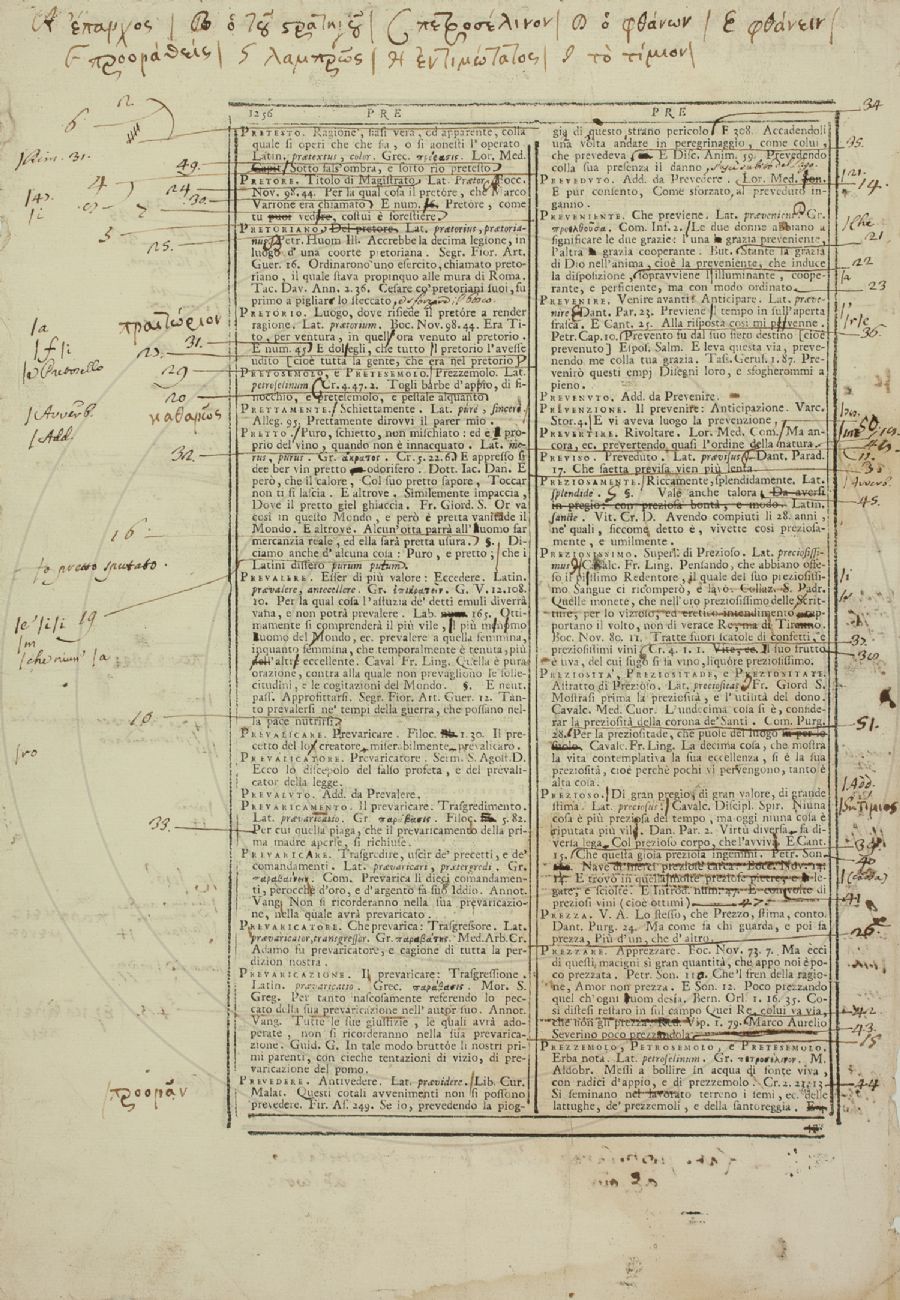 A ἔπαρχος | B ὁ τοῦ στρατηγοῦ | C πετροσέλινον | D ὁ φθάνων | E φθάνειν |
F προοραθείς | G λαμπρῶς | H ἐντιμώτατος | I τὸ τίμιον |
1256 PRE PRE
PRETESTO. Ragione, siasi vera, od apparente, colla
quale si operi che che sia, o si onesti l'operato
Latin. prætextus, color. Grec. πρόφασις. Lor. Med.
Sotto sass'ombra, e sotto rio pretesto
PRETORE. Titolo di Magistrato. Lat. Prætor. Bocc.
Nov. 98. 44. Per la qual cosa il pretore, che Marco
Varrone era chiamato E num. Pretore, come
tu vedere, costui è forestiere.
PRETORIANO. Del pretore. Lat. prætorius, prætoria-
nus. Petr. Huom Ill. Accrebbe la decima legione, in
luogo d'una coorte pretoriana. Segr. Fior. Art.
Guer. 16. Ordinarono un esercito, chiamato preto-
riano, il quale stava propinquo alle mura di Roma.
Tac. Dav. Ann. 2. 36. Cesare co' pretoriani suoi, fu
primo a pigliare lo steccato,
PRETORIO. Luogo, dove risiede il pretore a render
ragione. Lat. prætorium. Boc. Nov. 98. 44. Era Ti-
to, per ventura, in quell'ora venuto al pretorio.
E num. 45 E dolsegli, che tutto il pretorio l'avesse
udito [cioè tutta la gente, che era nel pretorio
PRETOSEMOLO, e PRETESEMOLO. Prezzemolo. Lat.
petroselinum Cr. 4. 47. 2. Togli barbe d'appio, di fi-
nocchio, e pretesemolo, e pestale alquanto
PRETTAMENTE. Schiettamente. Lat. purè, sincerè.
Alleg. 95. Prettamente dirovvi il parer mio.
PRETTO. Puro, schietto, non mischiato: ed è proprio
del vino, quando non è innacquato. Lat. me-
rus, purus. Gr. ἄκρατος. Cr. 5. 22. 6 E appresso si
dee ber vin pretto odorifero. Dott. Iac. Dan. E
però, che il calore, Col suo pretto sapore, Toccar
non ti si lascia. E altrove. Similemente impaccia,
Dove il pretto giel ghiaccia. Fr. Giord. S. Or va
così in questo Mondo, e però è pretta vanitade il
Mondo. E altrove. Alcun'otta parrà all'huomo far
mercanzia reale, ed ella sarà pretta usura. §. Di-
ciamo anche d'alcuna cosa: Puro, e pretto; che i
Latini dissero purum putum.
PREVALERE. Esser di più valore: Eccedere. Latin.
prævalere, antecellere. Gr. ἐπικρατεῖν. G. V. 12. 108.
10. Per la qual cosa l'astuzia de' detti emuli diverrà
vana, e non potrà prevalere. Lab. 165. Otti-
mamente si comprenderà il più vile, il più minimo
huomo del Mondo, ec. prevalere a quella femmina,
inquanto femmina, che temporalmente è tenuta, più
dell'altre eccellente. Caval Fr. Ling. Quella è pura
orazione, contra alla quale non prevagliono le solle-
citudini, e le cogitazioni del Mondo. §. E neut.
pass. Approfittarsi. Segr. Fior. Art. Guer. 12. Tan-
to prevalersi ne' tempi della guerra, che possano nel-
la pace nutrirsi.
PREVALICARE. Prevaricare. Filoc. 1. 30. Il pre-
cetto del lor creatore miserabilmente prevalicaro.
PREVALICATORE. Prevaricatore. Serm. S. Agost. D.
Ecco lo discepolo del falso profeta, e del prevali-
cator della legge.
PREVALUTO. Add. da Prevalere.
PREVARICAMENTO. Il prevaricare. Trasgredimento.
Lat. prævaricatio. Gr παράβασις. Filoc. 5. 82.
Per cui quella piaga, che il prevaricamento della pri-
ma madre aperse, si richiuse.
PREVARICARE. Trasgredire, uscir de' precetti, e de'
comandamenti. Lat. prævaricari, prætergredi. Gr.
παραβαίνειν. Com. Prevarica li dieci comandamen-
ti, perocchè d'oro, e d'argento fa suo Iddio. Annot.
Vang. Non si ricorderanno nella sua prevaricazio-
ne, nella quale avrà prevaricato.
PREVARICATORE. Che prevarica: Trasgressore. Lat.
prævaricator, transgressor. Gr. παραβάτης. Med. Arb. Cr.
Adamo fu prevaricatore, e cagione di tutta la per-
dizion nostra.
PREVARICAZIONE. Il prevaricare: Trasgressione.
Latin. prævaricatio. Grec. παράβασις. Mor. S.
Greg. Per tanto nascosamente referendo lo pec-
cato della sua prevaricazione nell'autor suo. Annot.
Vang. Tutte le sue giustizie, le quali avrà ado-
perate, non si ricorderanno nella sua prevarica-
zione. Guid. G. In tale modo bruttòe li nostri pri-
mi parenti, con cieche tentazioni di vizio, di pre-
varicazione del pomo.
PREVEDERE. Antivedere. Lat. prævidere. Lib. Cur.
Malat. Questi cotali avvenimenti non si possono
prevedere. Fir. As. 249. Se io, prevedendo la piog-
gia di questo strano pericolo F 308. Accadendoli
una volta andare in peregrinaggio, come colui,
che prevedeva E Disc. Anim. 59. Prevedendo
colla sua presenza il danno,
PREVEDUTO. Add. da Prevedere. Lor. Med.
E pur consento, Come sforzato, al preveduto in-
ganno.
PREVENIENTE. Che previene. Lat. præveniens. Gr.
προελθοῦσα. Com. Inf. 2. Le due donne abbiano a
significare le due grazie: l'una la grazia preveniente,
l'altra la grazia cooperante. But. Stante la grazia
di Dio nell'anima, cioè la preveniente, che induce
la disposizione, sopravviene l'illuminante, coope-
rante, e perficiente, ma con modo ordinato.
PREVENIRE. Venire avanti: Anticipare. Lat. præve-
nire Dant. Par. 23. Previene il tempo in sull'aperta
frasca. E Cant. 25. Alla risposta così mi prevenne.
Petr. Cap. 10. Prevento fu dal suo fiero destino [cioè
prevenuto] Espos. Salm. E leva questa via, preve-
nendo me colla tua grazia. Tass. Gerus. 1. 87. Preve-
nirò questi empj Disegni loro, e sfogherommi a
pieno.
PREVENUTO. Add. da Prevenire.
PREVENZIONE. Il prevenire: Anticipazione. Varc.
Stor. 4. E vi aveva luogo la prevenzione.
PREVERTERE. Rivoltare. Lor. Med. Com. Ma an-
cora, ec. prevertendo quasi l'ordine della natura.
PREVISO. Preveduto. Lat. prævisus. Dant. Parad.
17. Che saetta previsa vien più lenta.
PREZIOSAMENTE. Riccamente, splendidamente. Lat.
splendide. §. Vale anche talora, Da aversi
in pregio: con preziosa bontà, e modo. Latin.
sanctè. Vit. Cr. D. Avendo compiuti li 28. anni,
ne' quali, siccome detto è, vivette così preziosa-
mente, e umilmente.
PREZIOSISSIMO. Superl. di Prezioso. Lat. preciosissi-
mus. Cavalc. Fr. Ling. Pensando, che abbiano offe-
so il piissimo Redentore, il quale del suo preziosissi-
mo Sangue ci ricomperò, e lavò. Collaz. S. Padr.
Quelle monete, che nell'oro preziosissimo delle Scrit-
ture, per lo vizioso, ed eretico intendimento,
portano il volto, non di verace Re, ma di Tiranno.
Boc. Nov. 80. 11. Tratte fuori scatole di confetti, e
preziosissimi vini Cr. 4. 1. 1. Vite, ec. Il suo frutto
è uva, del cui sugo si fa vino, liquore preziosissimo.
PREZIOSITÀ, PREZIOSITADE, e PREZIOSITATE.
Astratto di Prezioso. Lat. preciositas Fr. Giord S.
Mostrasi prima la preziosità, e l'utilità del dono.
Cavalc. Med. Cuor. L'undecima cosa si è, conside-
rar la preziosità della corona de' Santi. Com. Purg.
28. Per la preziositade, che puole del luogo
Cavalc. Fr. Ling. La decima cosa, che mostra
la vita contemplativa la sua eccellenza, si è la sua
preziosità, cioè perchè pochi vi pervengono, tanto è
alta cosa.
PREZIOSO. Di gran pregio, di gran valore, di grande
stima. Lat. preciosus. Cavalc. Discipl. Spir. Niuna
cosa è più preziosa del tempo, ma oggi niuna cosa è
riputata più vile. Dan. Par. 2. Virtù diversa fa di-
versa lega, Col prezioso corpo, che l'avviva. E Cant.
15. Che questa gioia preziosa ingemmi. Petr. Son.
Nave di merci preziose carca. Bocc. Nov. 14.
14. E trovò in quella molte preziose pietre, e le-
gate, e sciolte. E Introd. num. 47. E con volte di
preziosi vini (cioè ottimi) 47.
PREZZA. V. A. Lo stesso, che Prezzo, stima, conto.
Dant. Purg. 24. Ma come fa chi guarda, e poi fa
prezza, Più d'un, che d'altro.
PREZZARE. Apprezzare. Boc. Nov. 73. 7. Ma ecci
di questi macigni sì gran quantità, che appo noi è po-
co prezzata. Petr. Son. Che'l fren della ragio-
ne, Amor non prezza. E Son. 12. Poco prezzando
quel ch'ogni huom desia. Bern. Orl. 1. 16. 35. Co-
sì disfesi restaro in sul campo Quei Re, colui va via,
che non gli prezza. Red. Vip. 1. 79. Marco Aurelio
Severino poco prezzandola
PREZZEMOLO, PETROSEMOLO, e PRETESEMOLO.
Erba nota. Lat. petroselinum. Gr. πετροσέλινον. M.
Aldobr. Messi a bollire in acqua di fonte viva,
con radici d'appio, e di prezzemolo. Cr. 2. 21. 13
Si seminano nel lavorato terreno i semi, ec. delle
lattughe, de' prezzemoli, e della santoreggia.
6
2
49.
24.
30.
3
25.
πραιτώριον
31.
29
20
καθαρῶς
|Avverb.
|Add.
32.
16
to pretto sputato.
19
10.
|ro
33.
προορᾶν
34
35.
14.
|che
21
22
23
36.
50
45.
30
51.
|Add.
τίμιος
40
41
26.
42
43.
15
44